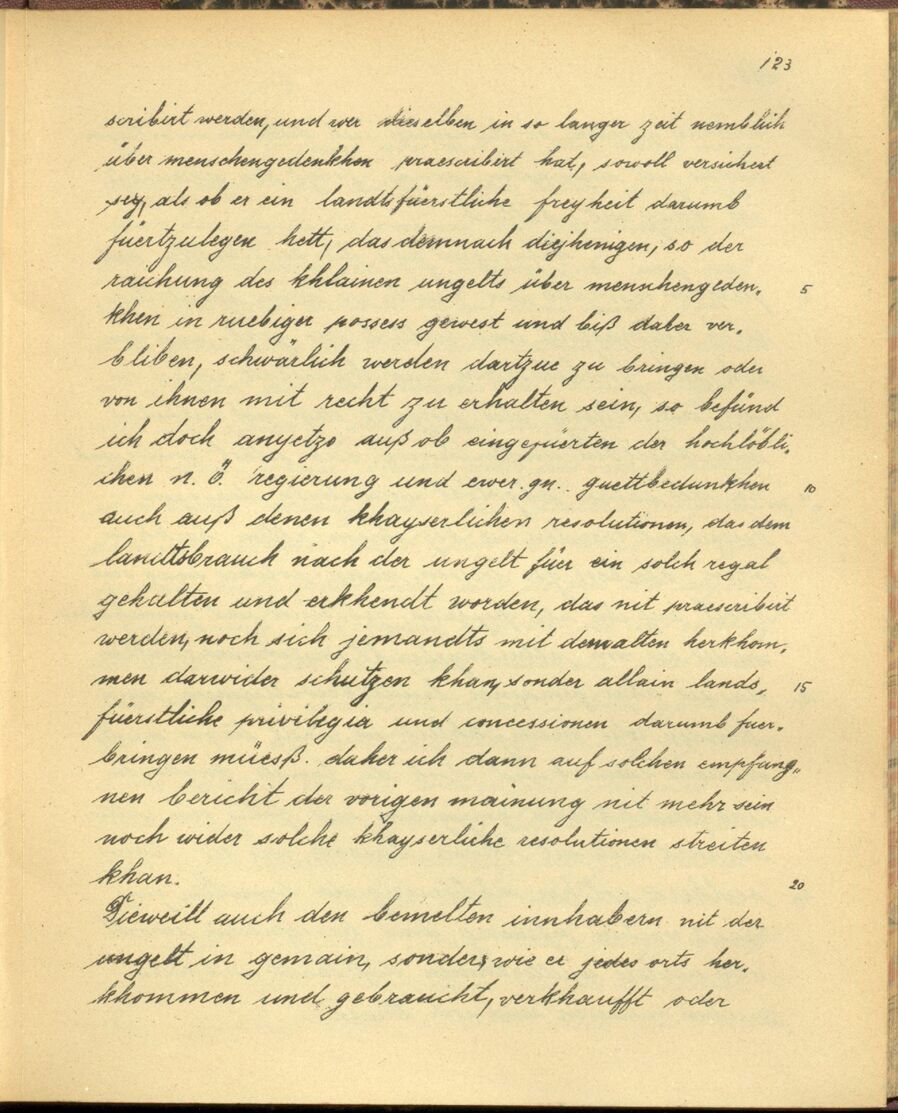 123
scribirt werden, und wer dieselben in so langer zeit nemblich
über menschengedenkhen praescribirt hat, sowoll versichert
sey, als ob er ein landtsfüerstliche freyheit darumb
füertzulegen hett, das demnach diejhenigen, so der
raichung des khlainen ungelts über menschengeden- 5
khen in ruebiger possess gewest und biß daher ver-
bliben, schwärlich werden dartzue zu bringen oder
von ihnen mit recht zu erhalten sein, so befünd
ich doch anyetzo auß ob eingefüerten der hochlöbli-
chen n. Ö. regierung und ewer. gn. guettbedunkhen 10
auch auß denen khayserlichen resolutionen, das dem
landtsbrauch nach der ungelt für ein solch regal
gehalten und erkhendt worden, das nit praescribirt
werden, noch sich jemandts mit dem alten herkhom-
men darwider schutzen khan, sonder allain lands- 15
füerstliche privilegia und concessionen darumb fuer-
bringen müesß. daher ich dann auf solchen empfang-
nen bericht der vorigen mainung nit mehr sein
noch wider solche khayserliche resolutionen streiten
khan. 20
Dieweill auch den bemelten innhabern nit der
ungelt in gemain, sonder, wie er jedes orts her-
khommen und gebraucht, verkhaufft oder